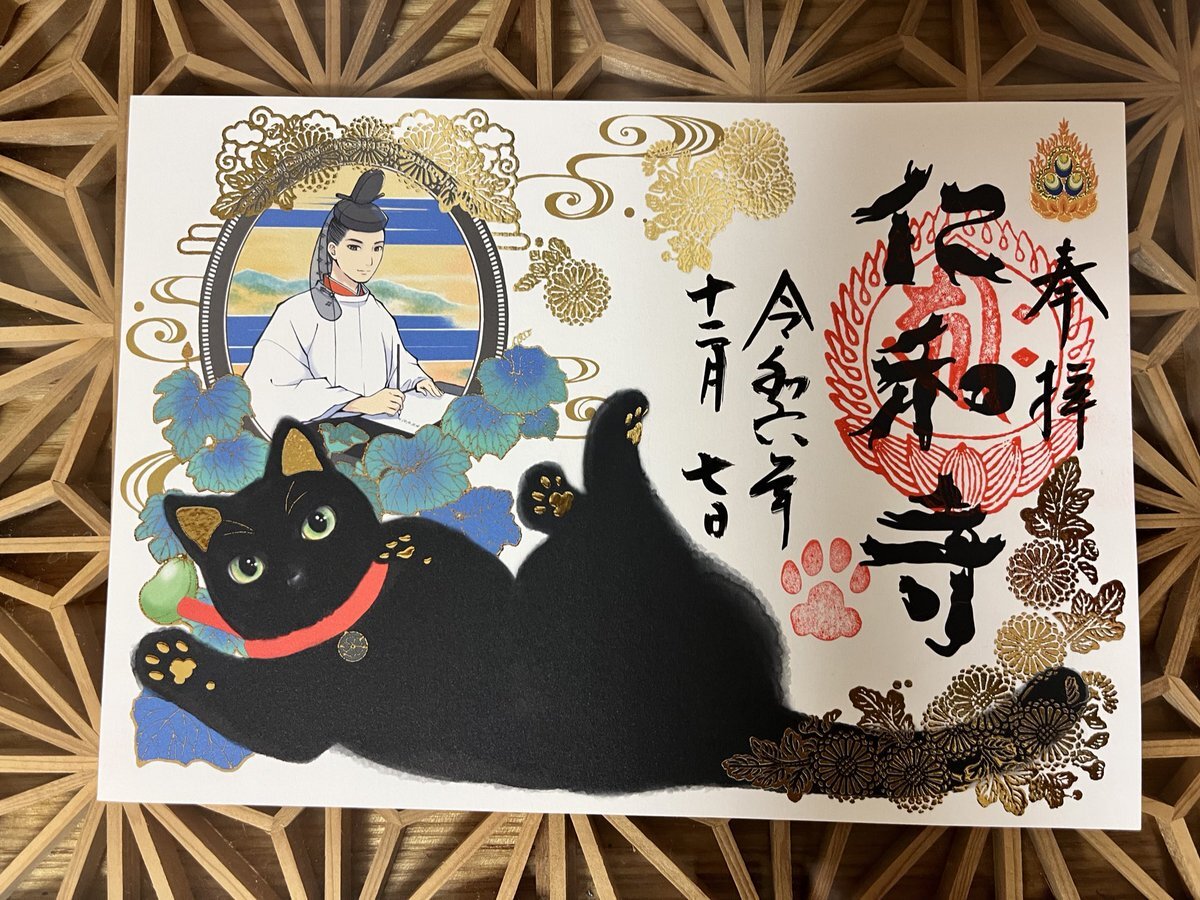 奉拝
仁和寺
令和六年
十二月七日